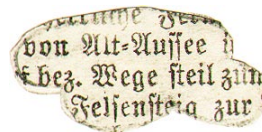 von Alt-Aussee
bez. Wege steil zum
Felsensteig zur